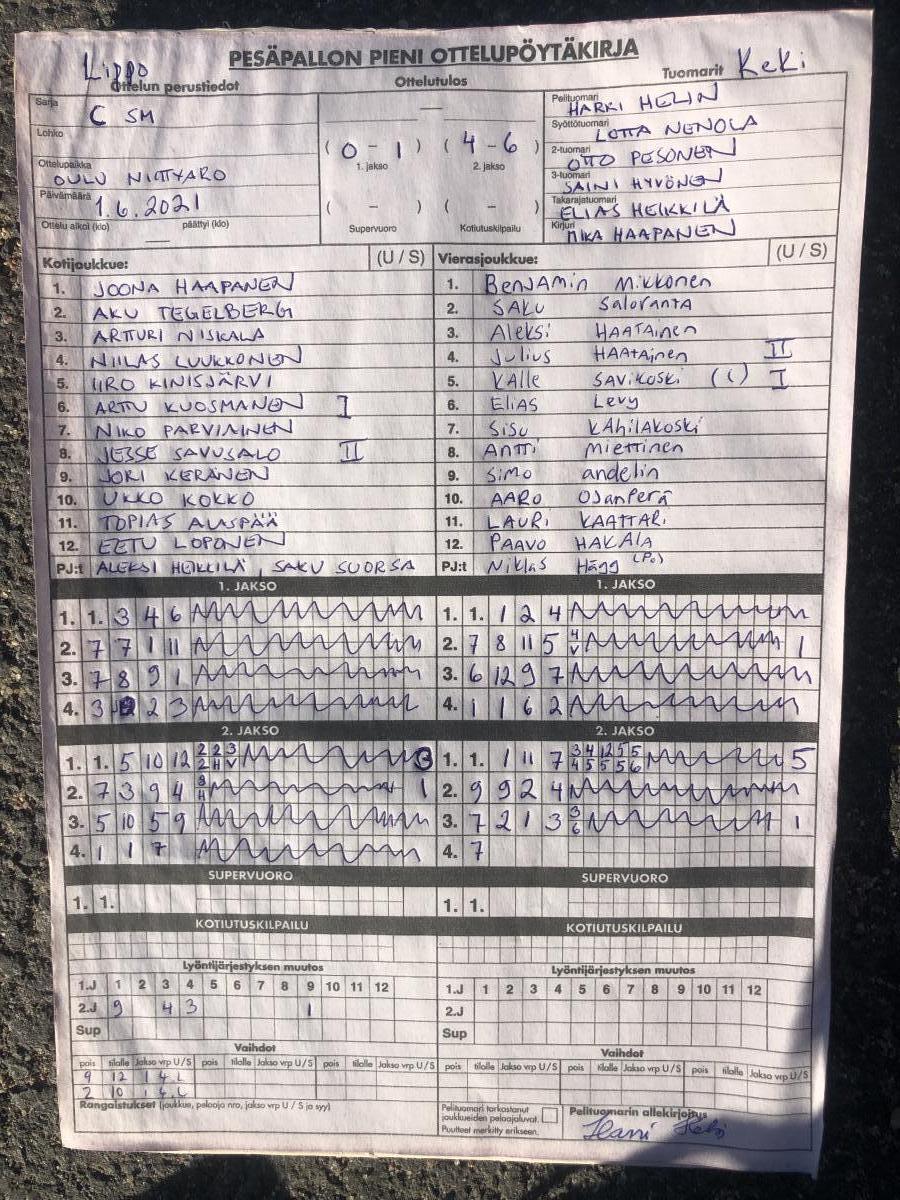 PESÄPALLON PIENI OTTELUPÖYTÄKIRJA
Lippo
KeKi
Ottelun perustiedot
Ottelutulos
Tuomarit
Sarja
C SM
Lohko
Ottelupaikka
OULU NIITTYARO
Päivämäärä
1.6.2021
Ottelu alkoi (klo) päättyi (klo)
( 0 - 1 ) ( 4 - 6 )
1. jakso 2. jakso
( - ) ( - )
Supervuoro Kotiutuskilpailu
Pelituomari
HARRI HELIN
Syöttötuomari
LOTTA NENOLA
2-tuomari
OTTO PESONEN
3-tuomari
SAINI HYVÖNEN
Takarajatuomari
ELIAS HEIKKILÄ
Kirjuri
MIKA HAAPANEN
Kotijoukkue: (U / S)
1. JOONA HAAPANEN
2. AKU TEGELBERG
3. ARTTURI NISKALA
4. NIILAS LUUKKONEN
5. IIRO KINISJÄRVI
6. ARTTU KUOSMANEN I
7. NIKO PARVIAINEN
8. JESSE SAVUSALO II
9. JORI KERÄNEN
10. UKKO KOKKO
11. TOPIAS ALASPÄÄ
12. EETU LOPONEN
PJ:t ALEKSI HEIKKILÄ, SAKU SUORSA
Vierasjoukkue: (U / S)
1. Benjamin Mikkonen
2. SAKU Saloranta
3. Aleksi HAATAINEN
4. Julius HAATAINEN II
5. VALLE SAVIKOSKI (C) I
6. ELIAS Levy
7. SISU KAHILAKOSKI
8. ANTTI Miettinen
9. SIMO andelin
10. AARO OJANPERÄ
11. LAURI KAATTARI
12. PAAVO HAKALA
PJ:t Niklas Hägg (Po)
1. JAKSO
1. 1. 3 4 6
2. 7 7 1 11
3. 7 8 9 1
4. 3 2 3
1. JAKSO
1. 1. 1 2 4
2. 7 8 11 5 4 V 1
3. 6 12 9 7
4. 1 1 6 2
2. JAKSO
1. 1. 5 10 12 2 2 3 2 H V 3
2. 7 3 9 4 8 H 1
3. 5 10 5 9
4. 1 1 7
2. JAKSO
1. 1. 1 11 7 3 4 12 5 5 4 5 5 5 6 5
2. 9 9 2 4
3. 7 2 1 3 3 6 1
4. 7
SUPERVUORO
1. 1.
SUPERVUORO
1. 1.
KOTIUTUSKILPAILU
KOTIUTUSKILPAILU
Lyöntijärjestyksen muutos
1.J 1 2 3 4 5 6 7 8 9 10 11 12
2.J 9 4 3 1
Sup
Lyöntijärjestyksen muutos
1.J 1 2 3 4 5 6 7 8 9 10 11 12
2.J
Sup
Vaihdot
pois tilalle Jakso vrp U/S pois tilalle Jakso vrp U/S pois tilalle Jakso vrp U/S
9 12 1 4.L
2 10 1 4.L
Vaihdot
pois tilalle Jakso vrp U/S pois tilalle Jakso vrp U/S pois tilalle Jakso vrp U/S
Rangaistukset (joukkue, pelaaja nro, jakso vrp U / S ja syy)
Pelituomari tarkastanut
joukkueiden pelaajaluvat.
Puutteet merkitty erikseen.
Pelituomarin allekirjoitus